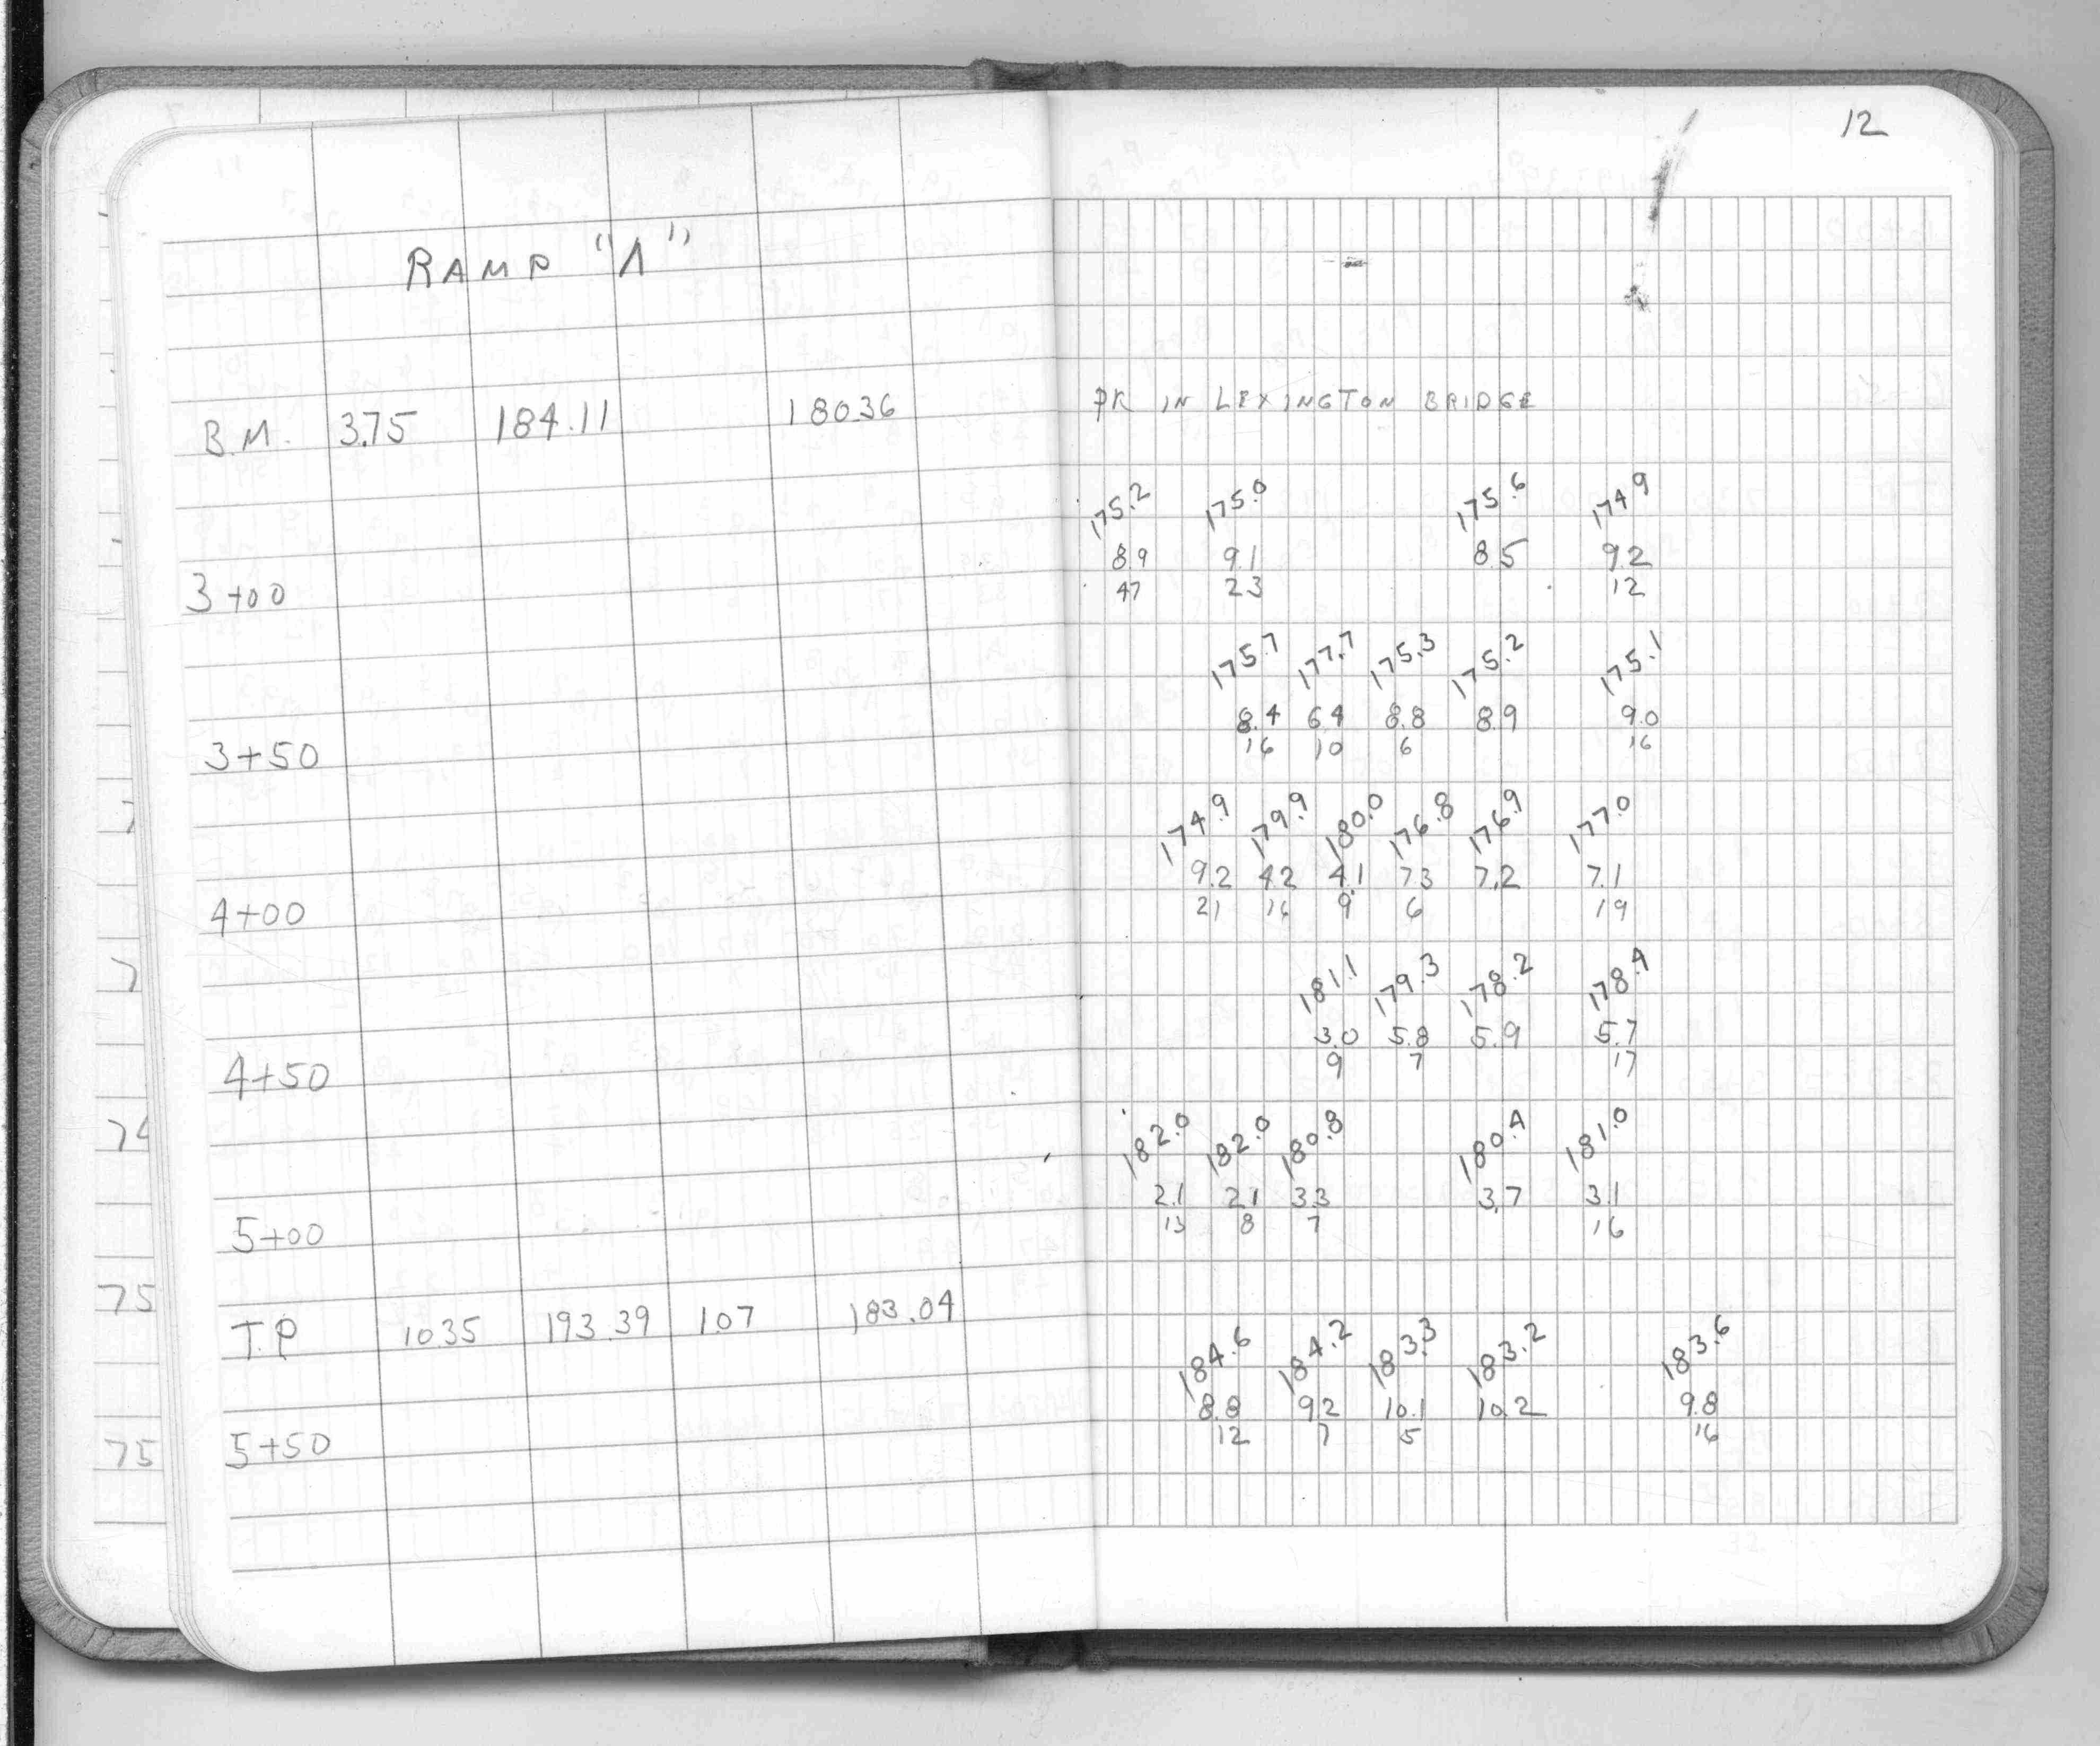 12
RAMP "A"
B.M. 3.75 184.11 180.36 PK IN LEXINGTON BRIDGE
175.2 175.0 175.6 174.9
8.9 9.1 8.5 9.2
3+00 47 23 12
175.7 177.7 175.3 175.2 175.1
8.4 6.4 8.8 8.9 9.0
3+50 16 10 6 16
174.9 179.9 180.0 176.8 176.9 177.0
9.2 4.2 4.1 7.3 7.2 7.1
4+00 21 16 9 6 19
181.1 179.3 178.2 178.4
3.0 5.8 5.9 5.7
4+50 9 7 17
182.0 182.0 180.8 180.4 181.0
2.1 2.1 3.3 3.7 3.1
5+00 13 8 7 16
T.P 10.35 193.39 1.07 183.04
184.6 184.2 183.3 183.2 183.6
8.8 9.2 10.1 10.2 9.8
5+50 12 7 5 16
75
75